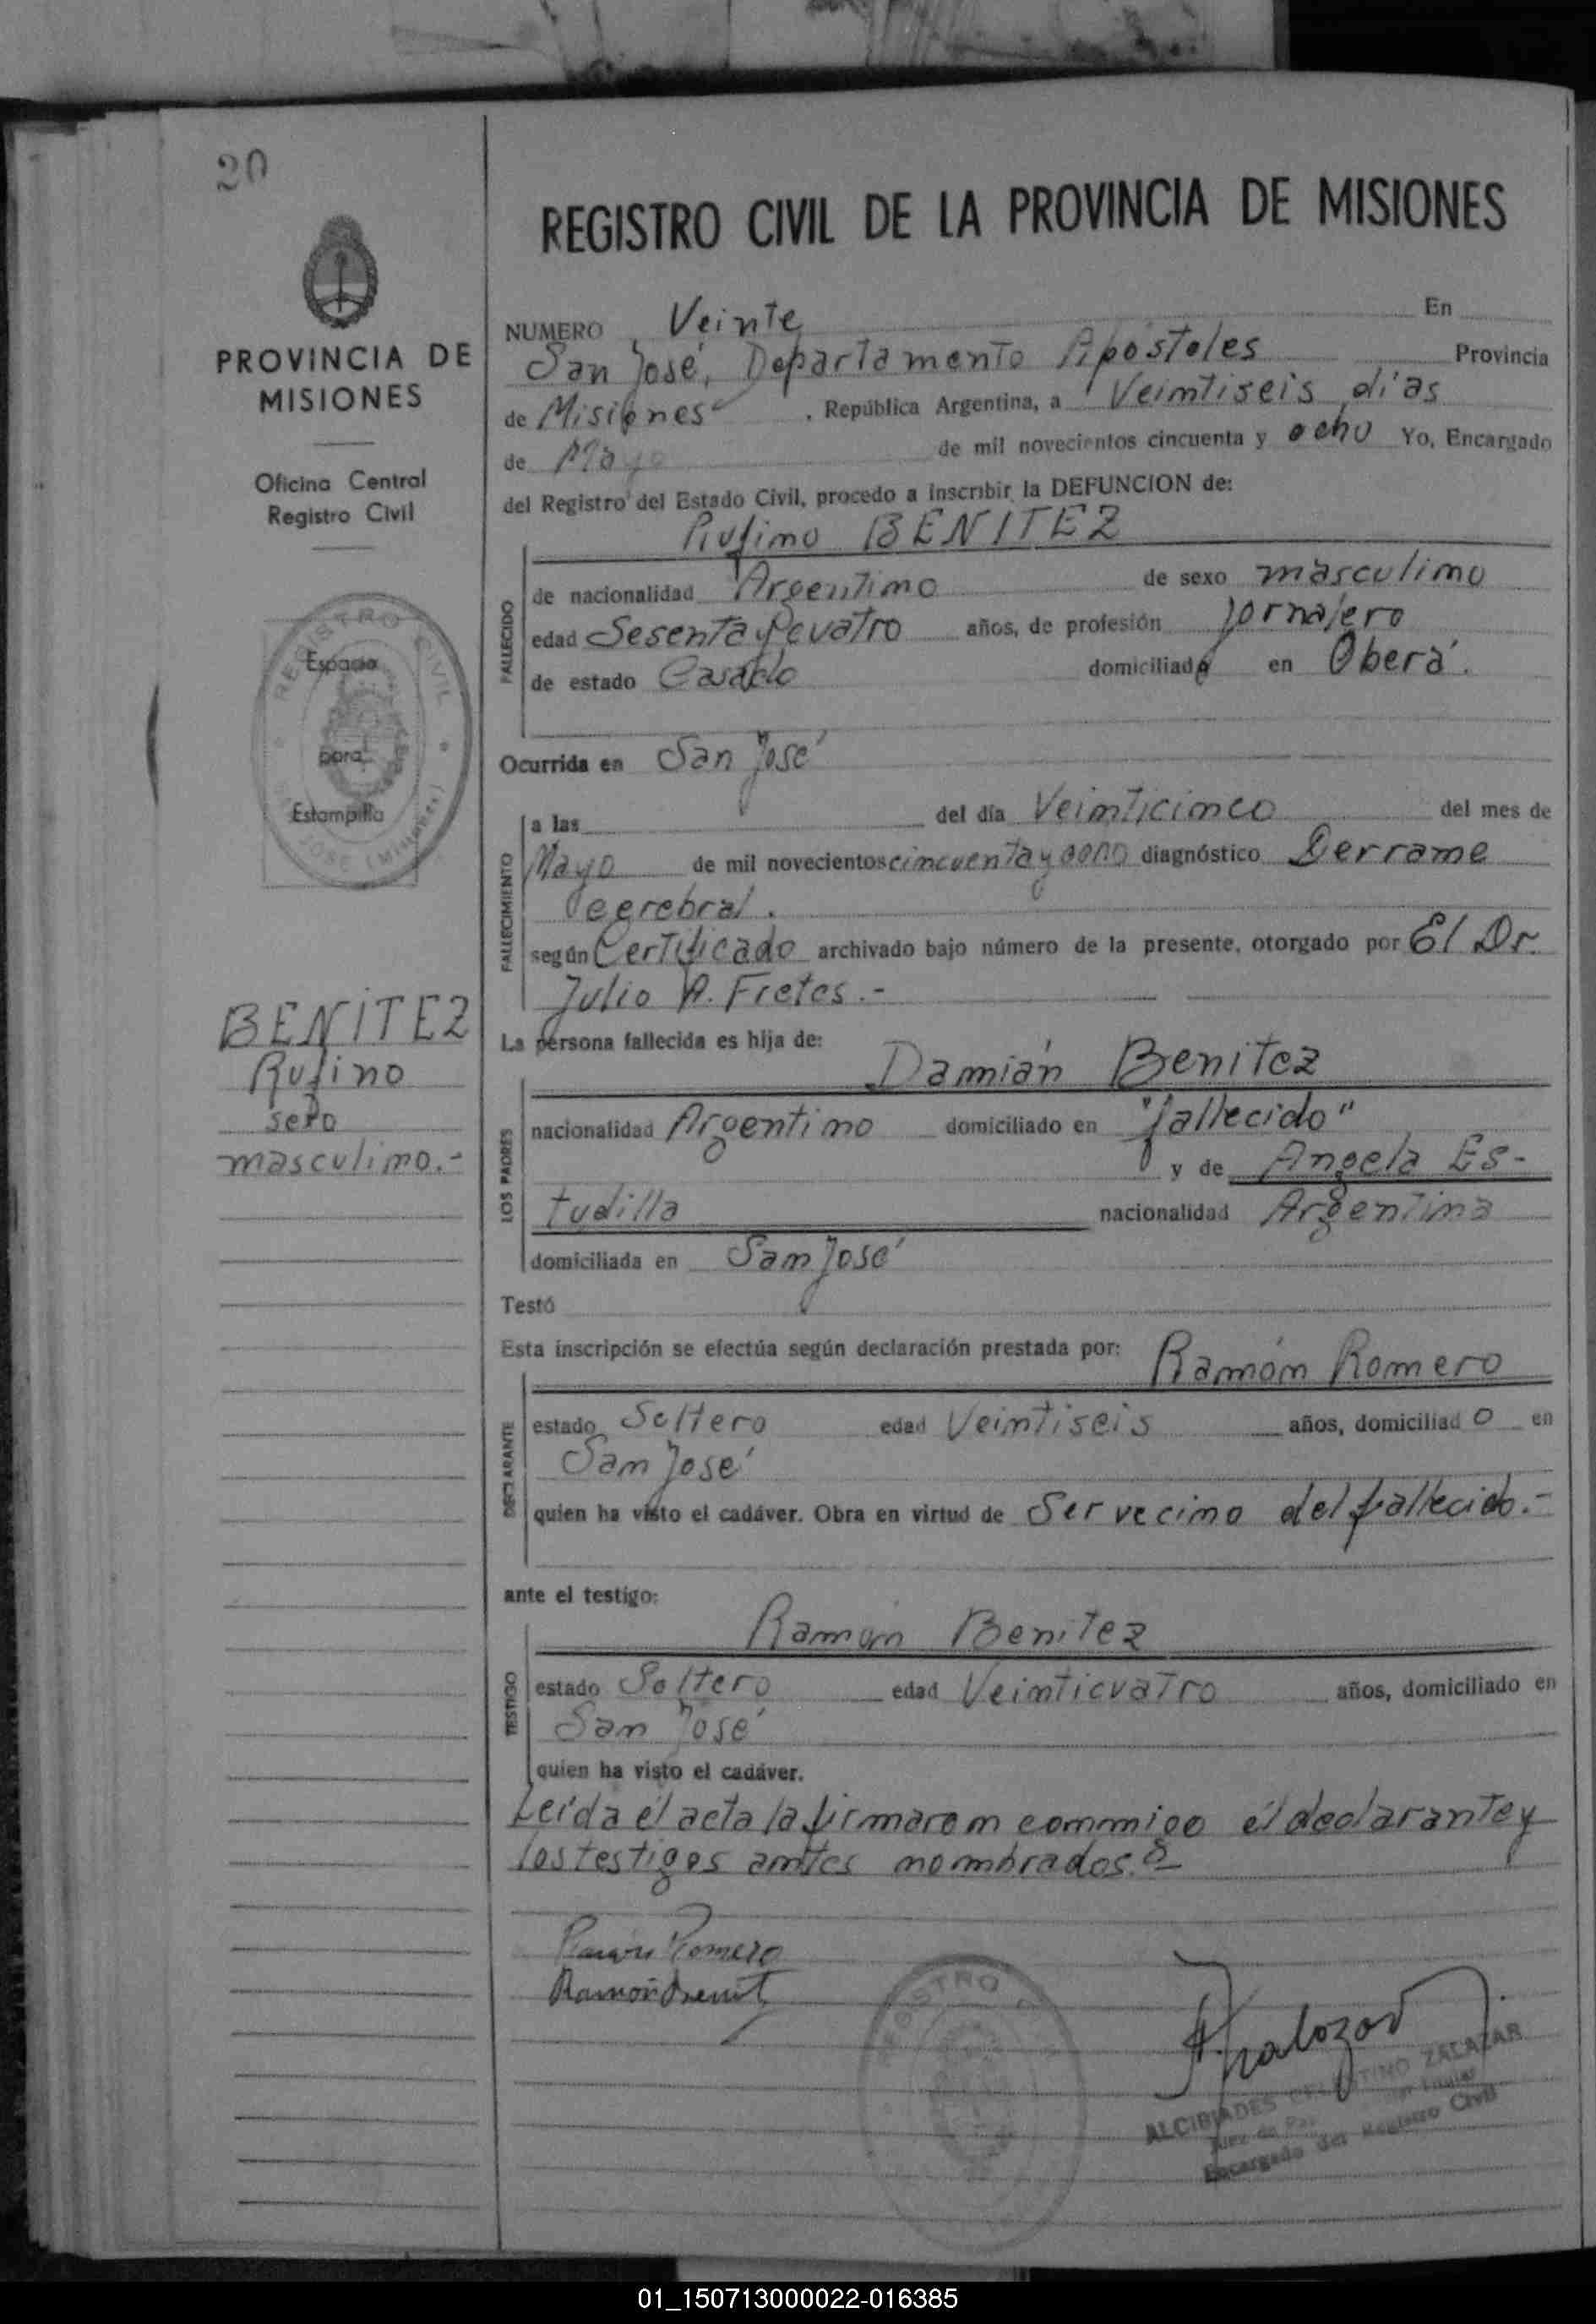 20
PROVINCIA DE
MISIONES
Oficina Central
Registro Civil
REGISTRO CIVIL
Espacio
para
Estampilla
JOSE (Misiones)
BENITEZ
Rufino
sexo
masculino.-
REGISTRO CIVIL DE LA PROVINCIA DE MISIONES
NUMERO Veinte En
San José, Departamento Apóstoles Provincia
de Misiones . República Argentina, a Veintiseis días
de Mayo de mil novecientos cincuenta y ocho Yo, Encargado
del Registro del Estado Civil, procedo a inscribir la DEFUNCION de:
Rufino BENITEZ
FALLECIDO
de nacionalidad Argentino de sexo masculino
edad Sesenta y cuatro años, de profesión Jornalero
de estado Casado domiciliado en Oberá.
Ocurrida en San José
FALLECIMIENTO
a las del día Veinticinco del mes de
Mayo de mil novecientos cincuenta y ocho diagnóstico Derrame
cerebral.
según Certificado archivado bajo número de la presente, otorgado por El Dr.
Julio A. Fretes.-
La persona fallecida es hija de:
Damián Benitez
LOS PADRES
nacionalidad Argentino domiciliado en "fallecido"
y de Angela Es-
tudilla nacionalidad Argentina
domiciliada en San José
Testó
Esta inscripción se efectúa según declaración prestada por: Ramón Romero
DECLARANTE
estado Soltero edad Veintiseis años, domiciliado en
San José
quien ha visto el cadáver. Obra en virtud de Ser vecino del fallecido.-
ante el testigo:
Ramon Benitez
TESTIGO
estado Soltero edad Veinticuatro años, domiciliado en
San José
quien ha visto el cadáver.
Leída el acta la firmaron conmigo él declarante y
los testigos antes nombrados.
Ramon Romero
Ramón Benit
REGISTRO
ALCIBIADES CELESTINO ZALAZAR
Juez de Paz Titular
Encargado del Registro Civil
01_150713000022-016385